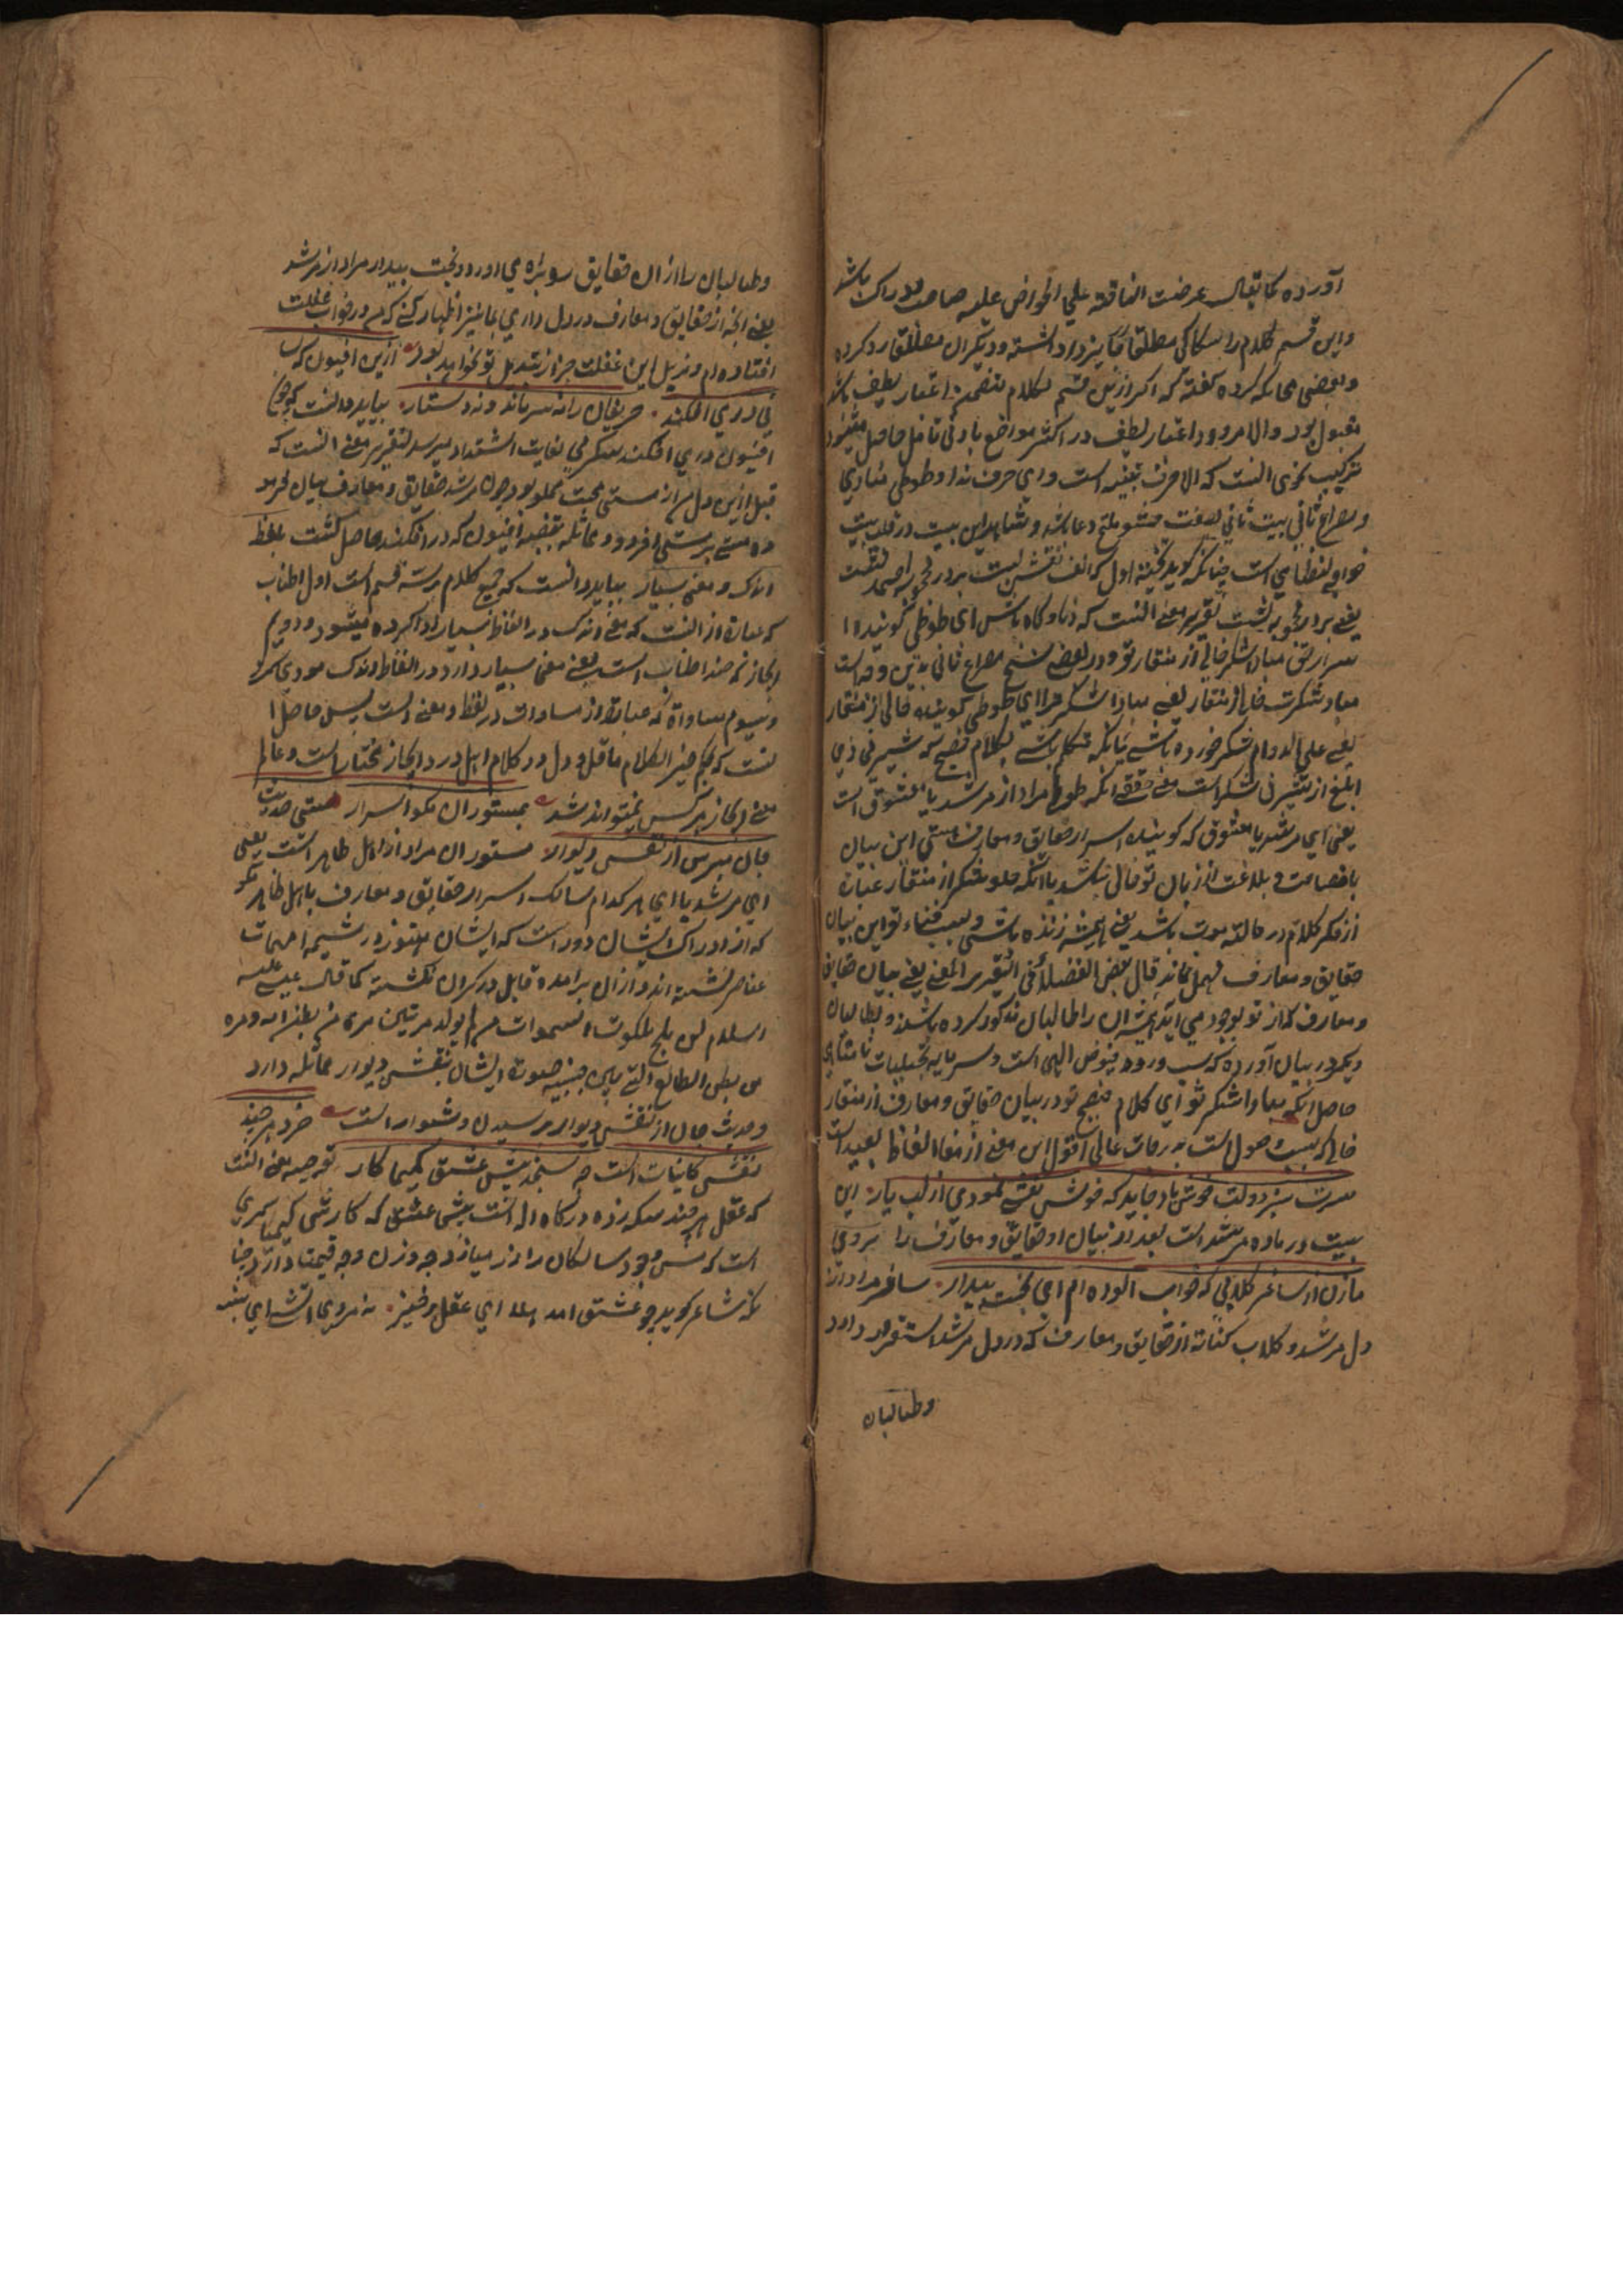 آورده کما یقال عرضت الناقة علی الحوض علیه صاحب ادراک باشد
واین قسم کلام را سکاکی مطلقا جایز داشته و دیگران مطلقا رد کرده
و بعضی محاکمه کرده گفته که اگر ازین قسم کلام متضمن اعتبار لطیف باشد
مقبول بود والا مردود اعتبار لطیف در اکثر مواضع بادنی تامل حاصل میشود
ترکیب نحوی انست که الا حرف تنبیه است و ای حرف ندا و طوطی منادی
و مصراع ثانی بیت ثانی بصفت حشو ملیح دعا باشد و شاهد این بیت در قلب بیت
خواجه نظامی است چنانکه گوید تخته اول که الف نقش بست بر در محجوبه احمد نشست
یعنی بر در محجوبه نشست تقریر معنی انست که دنا و کاه باش ای طوطی گوینده ا
سرار حق مبادا شکر خالی از منقار تو و در بعضی نسخ مصراع ثانی بدین وجه است
مبادا شکرت خالی از منقار یعنی مبادا شکر مرا ای طوطی گوینده خالی از منقار
یعنی علی الدوام شکر خورده باشی یا انکه متکلم باشی بکلام فصیح که شیرینی وی
ابلغ از شیرینی شکر است معنی حقیقی انکه طوطی مراد از مرشد یا معشوق است
یعنی ای مرشد یا معشوق که گوینده اسرار حقایق و معارف هستی این بیان
بافصاحت و بلاغت از زبان تو خالی نباشد یا انکه خلو شکر از منقار عبارة
از فکر کلام در حالة موت باشد یعنی همیشه زنده باشی و بسبب فناء تو این بیان
حقایق و معارف مهمل نماند قال بعض الفضلاء فی التقریر المعنی یعنی بیان حقایق
و معارف که از تو بوجود می آید همیشه ان را طالبان مذکور کرده باشند و بطالبان
دیگر در بیان آورده که سبب ورود فیوض الهی است و سرمایه تجلیات نامتناهی
حاصل انکه مبادا شکر تو ای کلام فصیح تو در بیان حقایق و معارف از منقار
خالی که سبب وصول است به درجات عالی اقول این معنی از منها الفاظ بعید است
سرت سبز و دلت خوش باد جاوید که خوش نقشی نمودی از لب یار این
بیت در باده مرشد است بعد از بیان او حقایق و معارف را بروی
مازن از ساغر گلابی که خواب الوده ام ای بخت بیدار ساغر مراد از
دل مرشد و گلاب کنایة از حقایق و معارف که در دل مرشد استقرار دارد
وطالبان
وطالبان را ازان حقایق سو براه می اورد و بخت بیدار مراد از مرشد
یعنی انچه از حقایق و معارف در دل داری بما نیز اظهار کن که من در خواب غفلت
افتاده ام و مزیل این غفلت جز از تبدیل تو نخواهد بود ازین افیون که سا
قی در می افکند حریفان را نه سر ماند و نه دستار بباید دانست که چون
افیون در می افکند سکر می بغایت اشتداد میرسد تقریر معنی انست که
قبل ازین دل من از مستی محبت مملو بود چون مرشد حقایق و معارف بیان فرمو
ده مستی بر مستی افزود و مماثله بقضیه افیون که در می افکند حاصل گشت بلفظ
اندک و معنی بسیار بباید دانست که جمیع کلام بر سه قسم است اول اطناب
که عبارة از انست که معنی اندک در الفاظ بسیار ادا کرده میشود و دوم
ایجاز که ضد اطناب است یعنی معنی بسیار دارد در الفاظ اندک مودی کرد
و سیوم مساواة که عبارة از مساوات در لفظ و معنی است پس حاصل ا
نست که بحکم خیر الکلام ما قل و دل در کلام اهل درد ایجاز مختار است و عالم
معنی ایجاز هر کس نمیتواند شد بمستوران مگو اسرار مستی حدیث
جان مپرس از نقش دیوار مستوران مراد از اهل ظاهر است یعنی
ای مرشد یا ای هر کدام سالک اسرار حقایق و معارف با اهل ظاهر مگو
که از ادراک ایشان دور است که ایشان هنوز در مشیمه امهات
عناصر نشسته اند و ازان برامده قابل در کران نگشته کما قال عیسی علیه
السلام لن یلج ملکوت السموات من لم یولد مرتین مرة من بطن امه ومرة
من بطن الطبائع التی پس جنبه صورة ایشان بنقش دیوار مماثله دارد
و حدیث جان از نقش دیوار پرسیدن دشوار است خرد هر چند
نقش کاینات است چه سنجد پیش عشق کیمیا کار توجیه معنی انست
که عقل هر چند سکه زده درگاه اله است پیش عشق که کارش کیمیا گری
است که مس وجود سالکان را زر میسازد چه وزن و چه قیمت دارد چنا
نکه شاعر گوید چو عشق امد الا ای عقل برخیز نه مروی اتشه ای پنبه